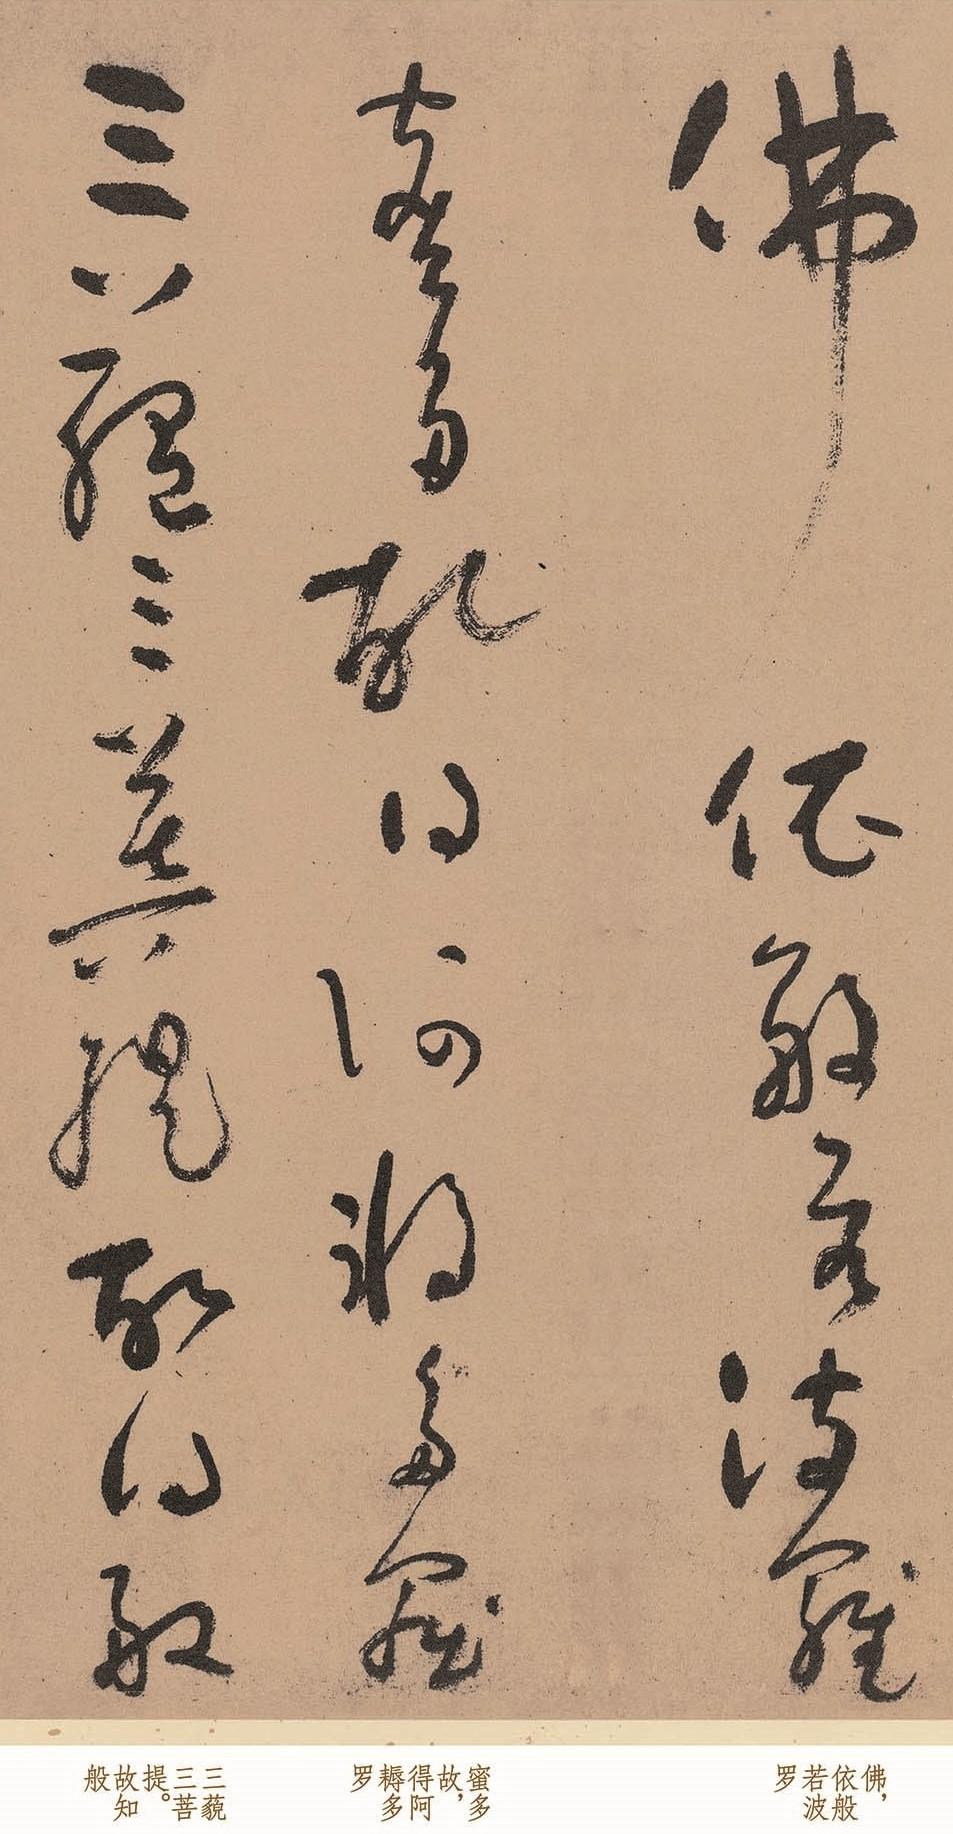 佛依般若波羅
蜜多故得阿耨多羅
三藐三菩提故知般
佛，
依般
若波
罗
蜜多
故，
得阿
耨多
罗
三藐
三菩
提。
故知
般